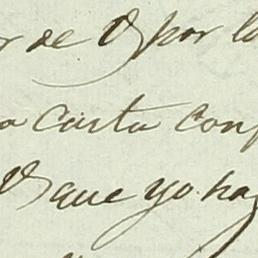 r de V por la
a carta conf
V que yo hag